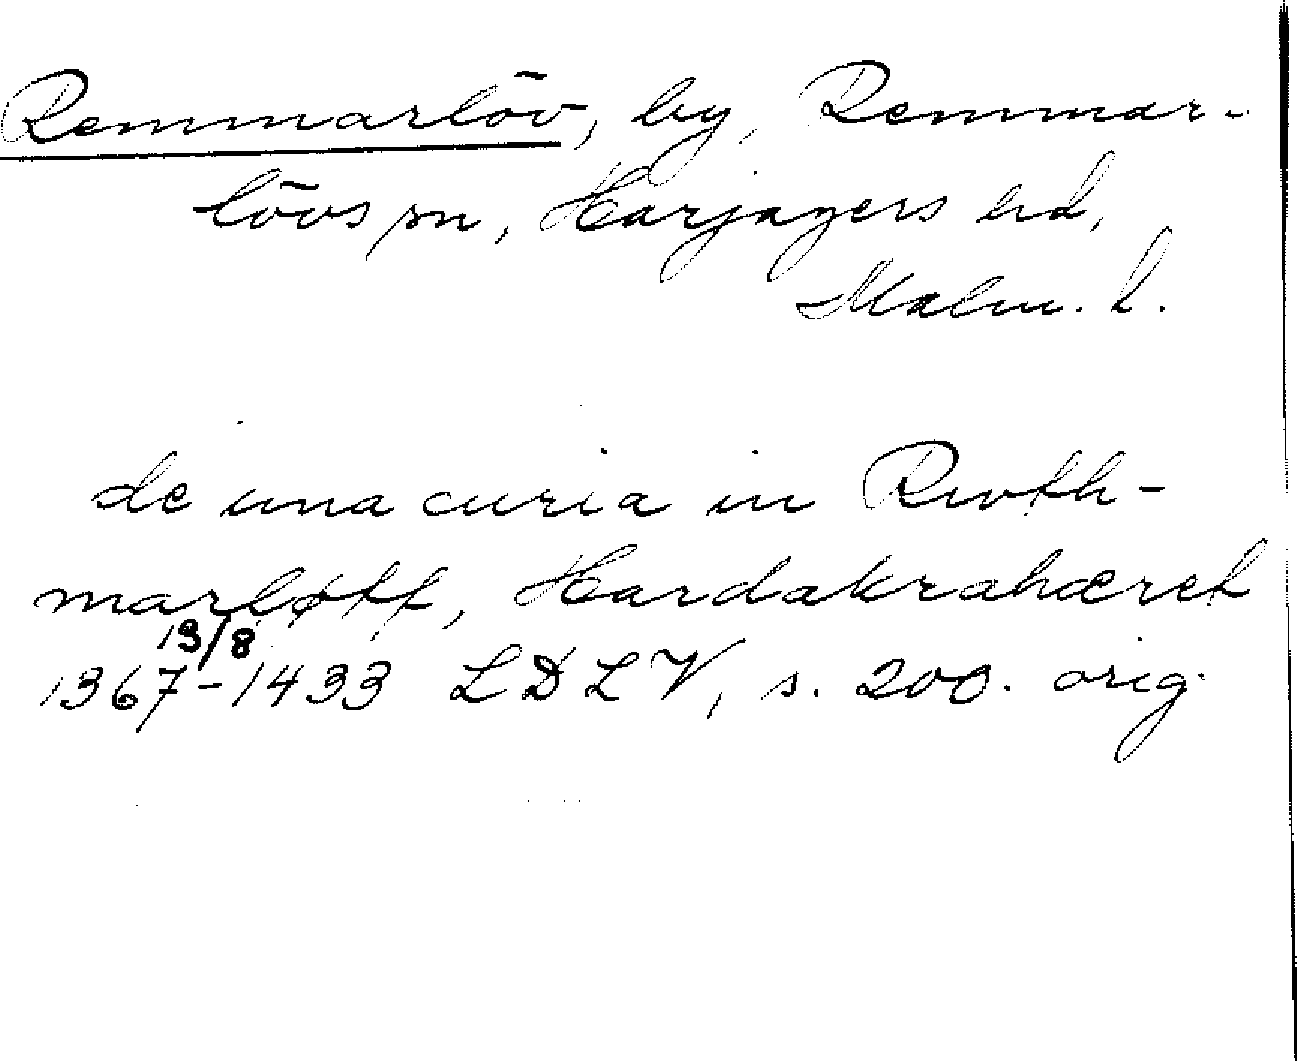 Remmarlöv, by, Remmar-
lövs sn, Harjagers hd,
Malm. l.
de una curia in Rwth-
marløff, Hardakrahæret
13/8
1367-1433 LDLV, s. 200. orig.